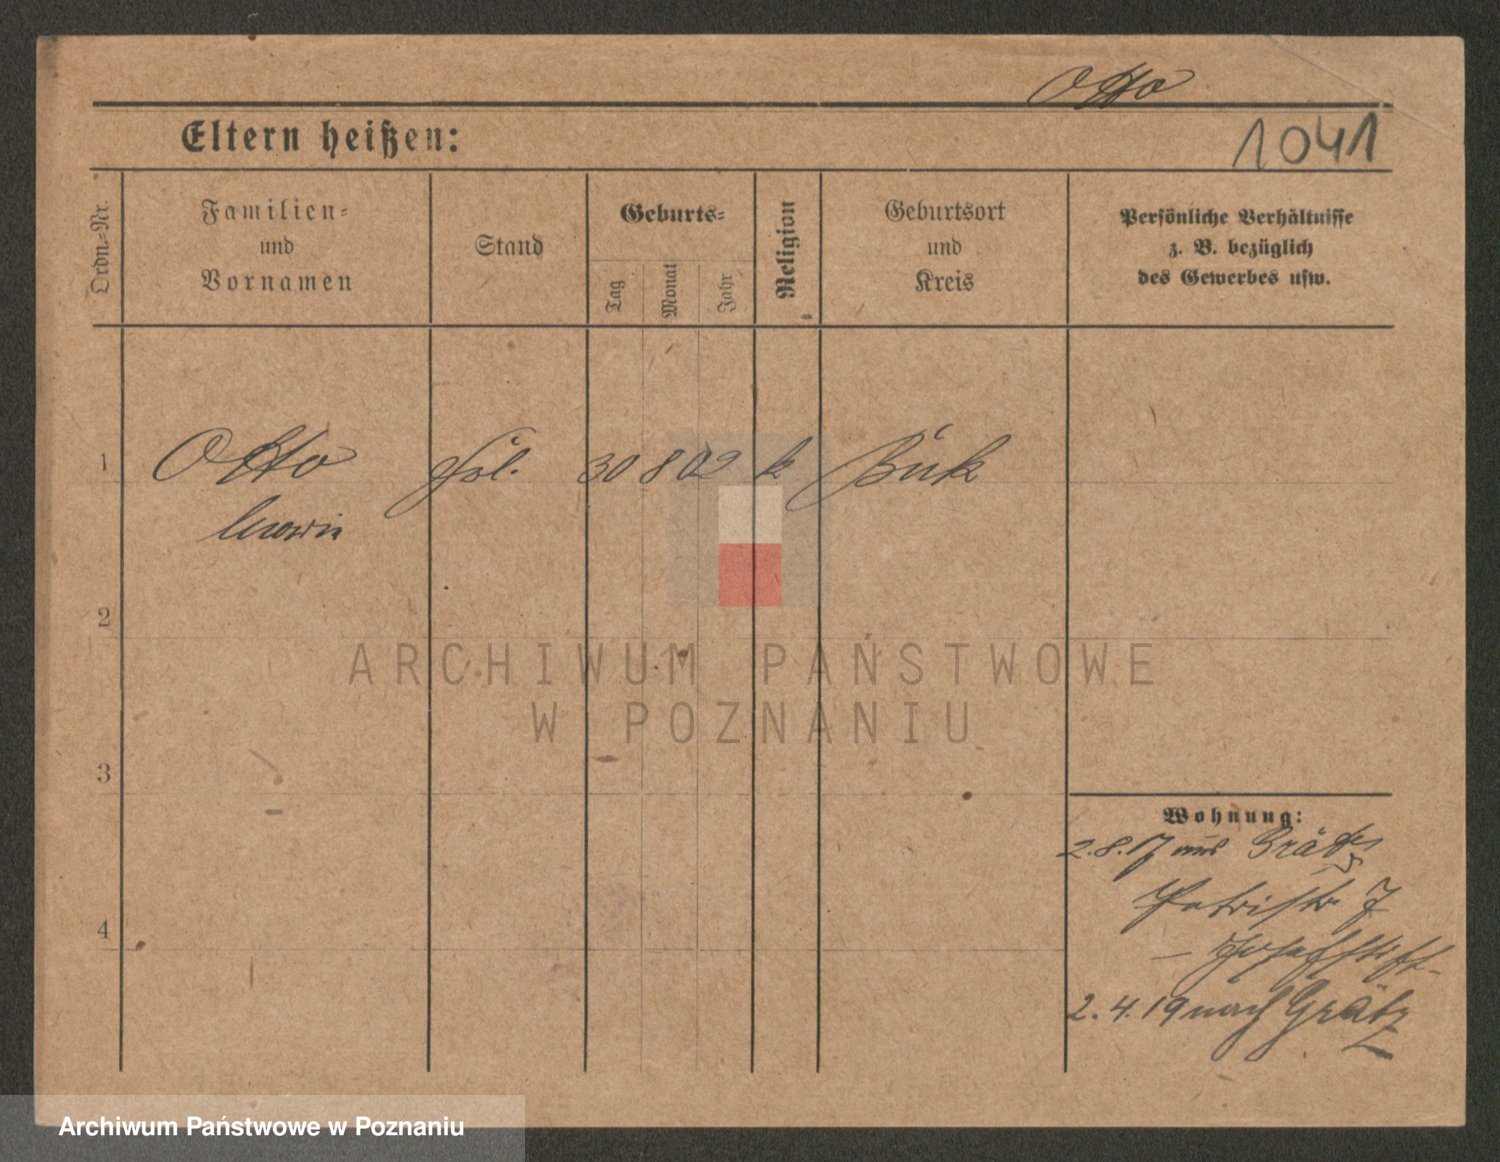 Otto
Eltern heißen:
1041
Ordn.-Nr.
Familien-
und
Vornamen
Stand
Geburts-
Tag
Monat
Jahr
Religion
Geburtsort
und
Kreis
Persönliche Verhältnisse
z. B. bezüglich
des Gewerbes usw.
1 Otto 30 8 02 k Buk
2
3
4
Wohnung:
2.8.17 aus Grätz
Petristr. 7
– Josefstift.
2.4.19 nach Grätz
ARCHIWUM PAŃSTWOWE
W POZNANIU
Archiwum Państwowe w Poznaniu